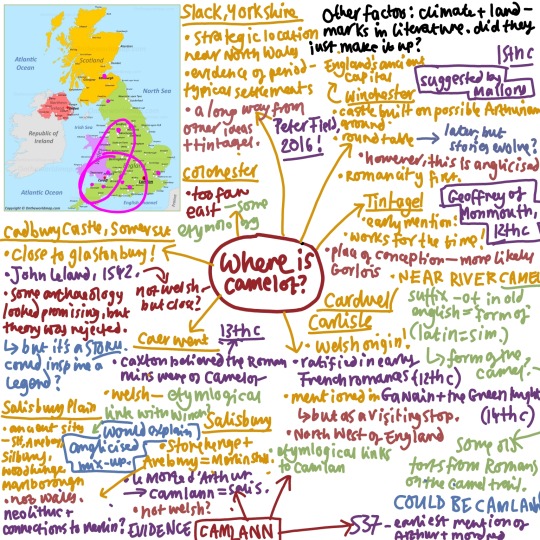 Slack, Yorkshire
• Strategic location
near North Wales
• evidence of period-
typical settlements
• a long way from
other ideas
+ tintagel.
Peter Field,
2016!
Other factor: climate + land-
marks in literature. did they
just make it up?
England's ancient
capital
15th c
suggested by
Mallory
Winchester
• castle built on possible Arthurian
ground
• round table → later, but
stories evolve?
• however, this is anglicised
• Roman city first.
Colchester
• too far
east – some
etymology
Tintagel
• early mention
• works for the time!
• place of conception – more likely
Gorlois
Geoffrey of
Monmouth,
12th c
Cadbury Castle, Somerset
• Close to glastonbury!
• John Leland, 1542.
• Some archaeology
looked promising, but
theory was rejected.
↳ but it's a STORY.
could inspire a
Legend?
not welsh
but close?
Where is
camelot?
NEAR RIVER CAMEL
suffix -ot in old
english = form of
(latin = sim.)
↳ form of the
camel.
Some old
forts from Romans
on the Camel trail.
Cardwell/
Carlisle
• Welsh origin!
• ratified in early
French romances (12th c)
• mentioned in Gawain + the Green Knight
(14th c)
↳ but as a visiting stop.
• North West of England
• etymological links
to Camlan
Caerwent
13th c
• Caxton believed the Roman
ruins were of Camelot
• welsh – etymological
link with Winch
Salisbury Plain
• ancient city
- SH, Avebury,
Silbury,
woodhenge
marlborough
• not wales.
neolithic +
connections to merlin?
would explain
anglicised
mix-up.
Salisbury
• Stonehenge +
Avebury = Merlin ish
• Le Morte d'Arthur
→ Camlann = Salis.
• not welsh?
EVIDENCE
CAMLANN
537 -
earliest mention of
Arthur + mordred
COULD BE CAMLANN
Atlantic
Ocean
North Sea
Scotland
Republic of
Ireland
Irish Sea
Atlantic Ocean
English Channel